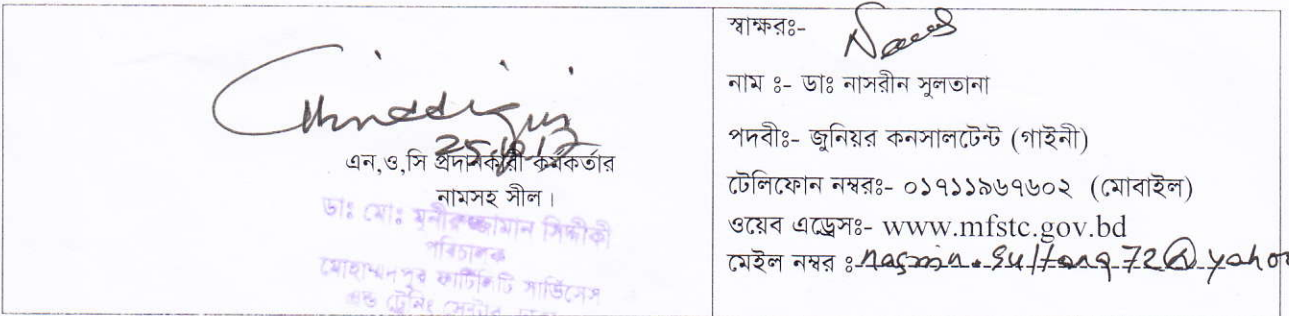 25.
এন,ও,সি প্রদানকারী কর্মকর্তার
নামসহ সীল।
ডাঃ মোঃ মুনীরুজ্জামান সিদ্দীকী
পরিচালক
মোহাম্মদপুর ফার্টিলিটি সার্ভিসেস
এন্ড ট্রেনিং সেন্টার, ঢাকা
স্বাক্ষরঃ-
নাম ঃ- ডাঃ নাসরীন সুলতানা
পদবীঃ- জুনিয়র কনসালটেন্ট (গাইনী)
টেলিফোন নম্বরঃ- ০১৭১১৯৬৭৬০২ (মোবাইল)
ওয়েব এড্রেসঃ- www.mfstc.gov.bd
মেইল নম্বর ঃ nasrin.sultana72@yahoo